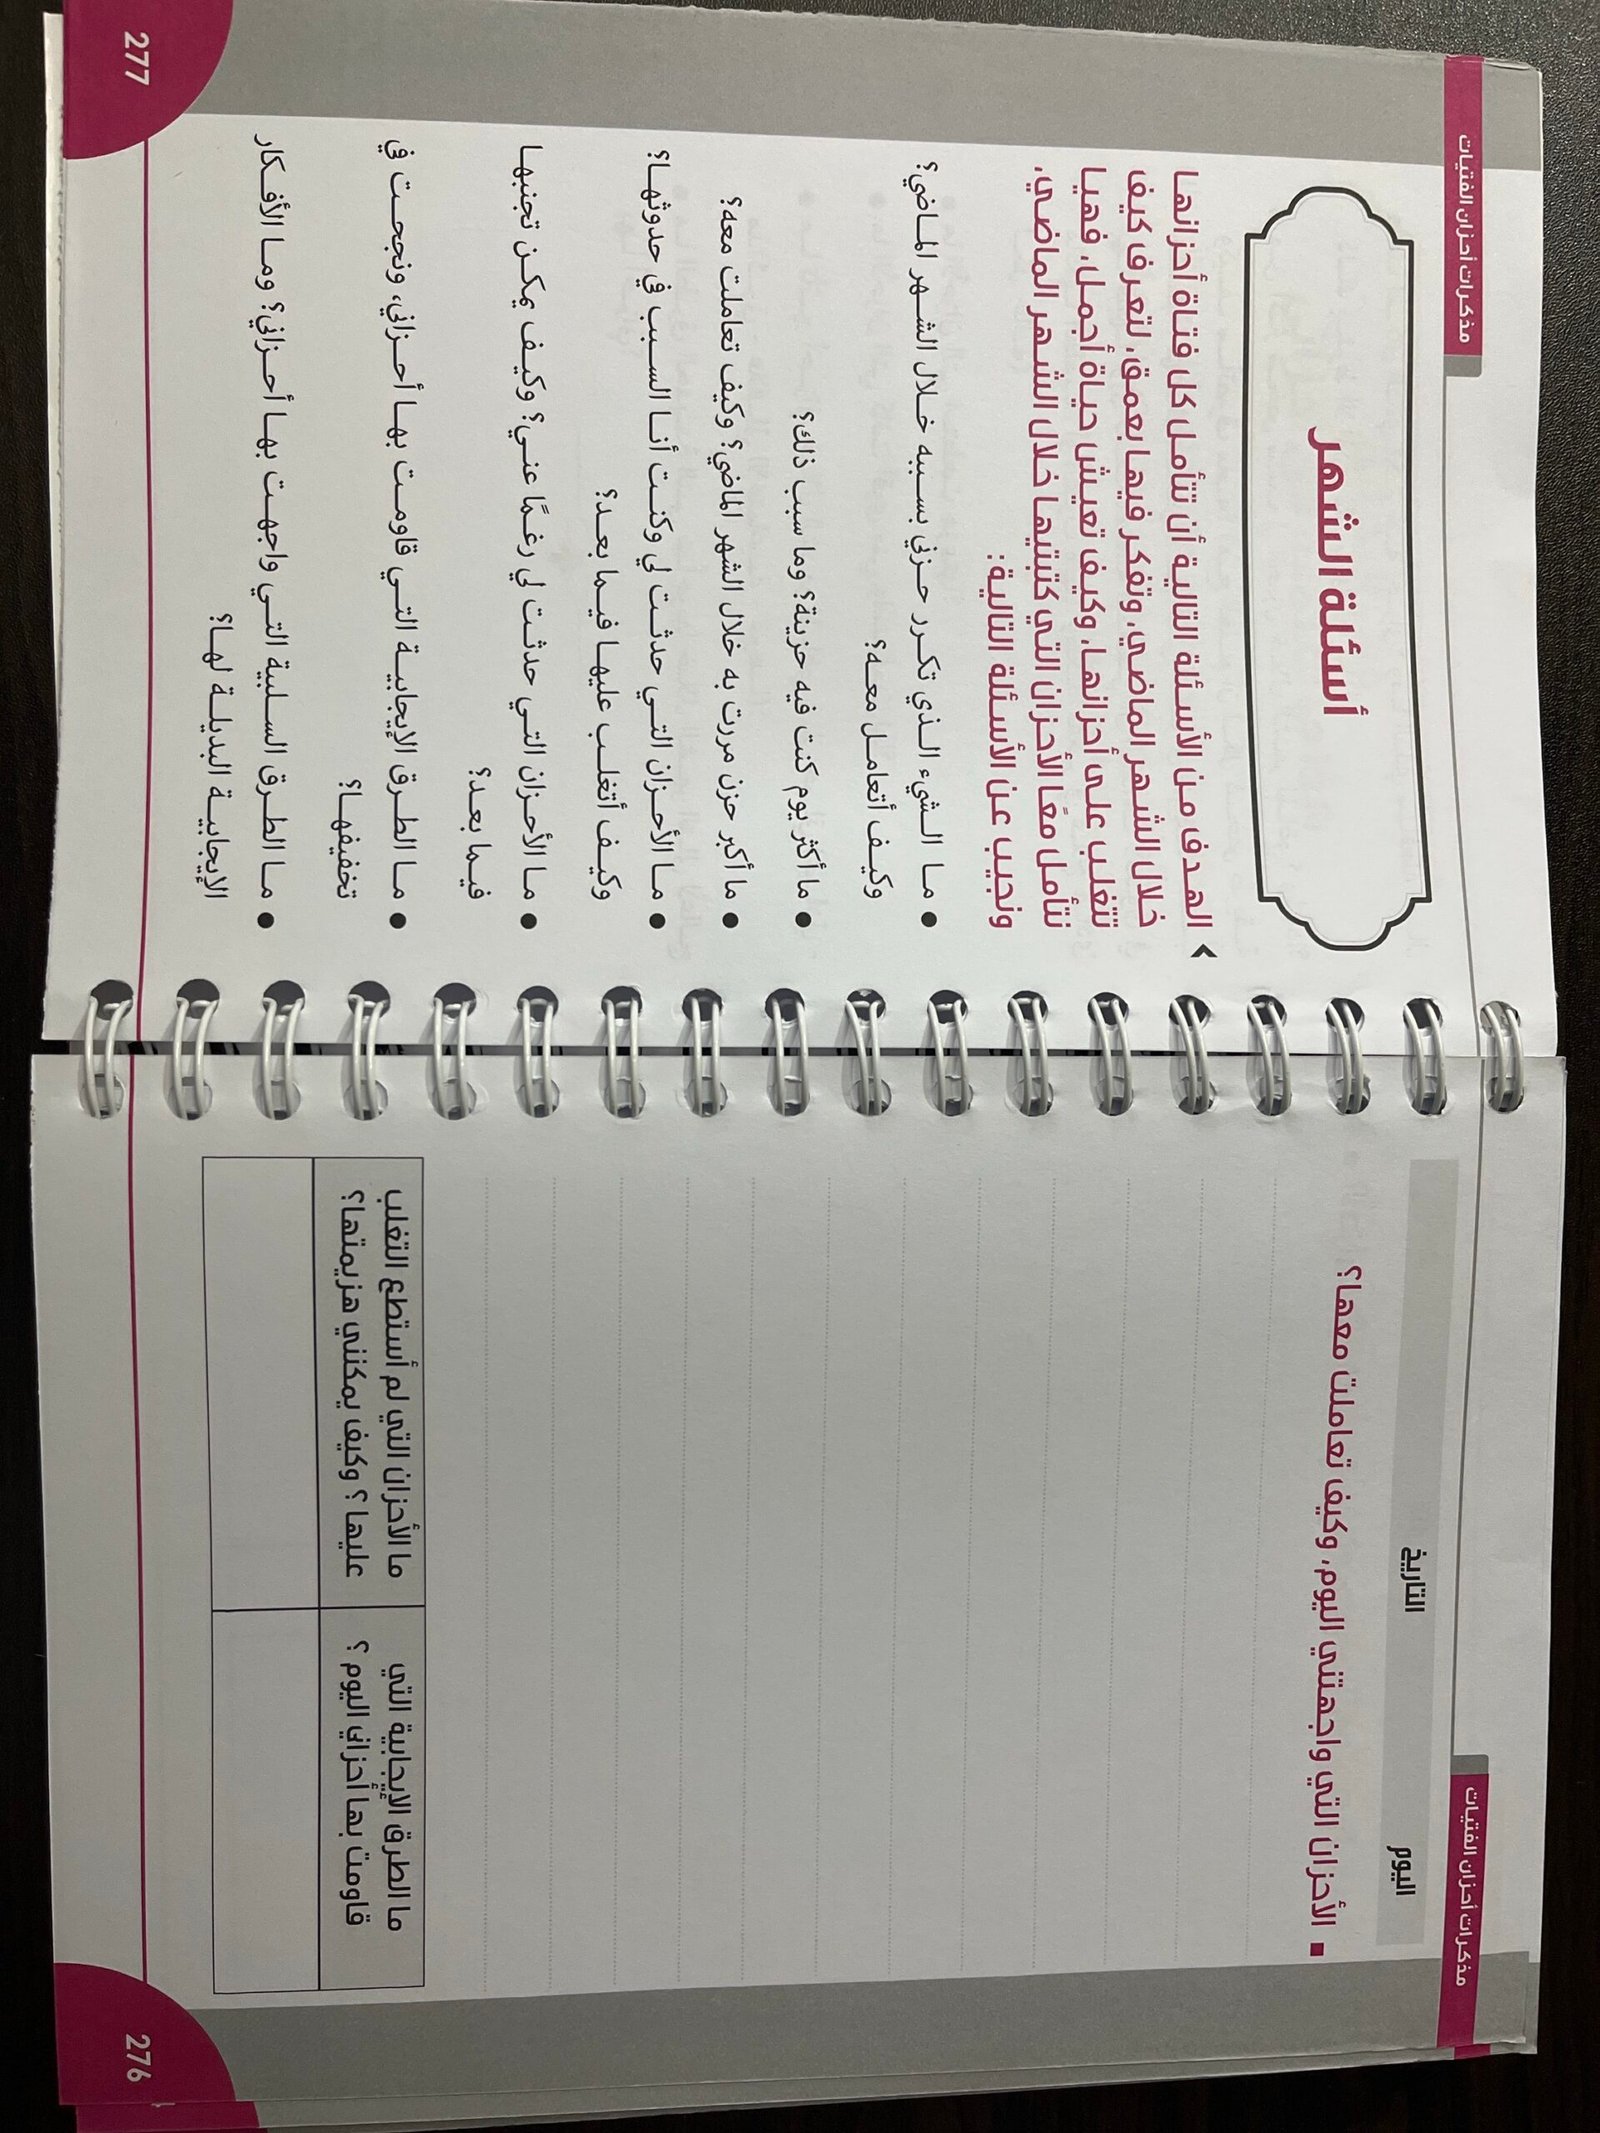 مذكرات أحزان الفتيات
اليوم
التاريخ
الأحزان التي واجهتني اليوم، وكيف تعاملت معها؟
ما الطرق الإيجابية التي
قاومت بها أحزاني اليوم ؟
ما الأحزان التي لم أستطع التغلب
عليها ؟ وكيف يمكنني هزيمتها؟
276
مذكرات أحزان الفتيات
أسئلة الشهر
الهدف من الأسئلة التالية أن تتأمل كل فتاة أحزانها
خلال الشهر الماضي، وتفكر فيها بعمق، لتعرف كيف
تتغلب على أحزانها، وكيف تعيش حياة أجمل، فهيا
نتأمل معًا الأحزان التي كتبتيها خلال الشهر الماضي،
ونجيب عن الأسئلة التالية:
● ما الشيء الذي تكرر حزني بسببه خلال الشهر الماضي؟
وكيف أتعامل معه؟
● ما أكثر يوم كنت فيه حزينة؟ وما سبب ذلك؟
● ما أكبر حزن مررت به خلال الشهر الماضي؟ وكيف تعاملت معه؟
● ما الأحزان التي حدثت لي وكنت أنا السبب في حدوثها؟
وكيف أتغلب عليها فيما بعد؟
● ما الأحزان التي حدثت لي رغمًا عني؟ وكيف يمكن تجنبها
فيما بعد؟
● ما الطرق الإيجابية التي قاومت بها أحزاني، ونجحت في
تخفيفها؟
● ما الطرق السلبية التي واجهت بها أحزاني؟ وما الأفكار
الإيجابية البديلة لها؟
277